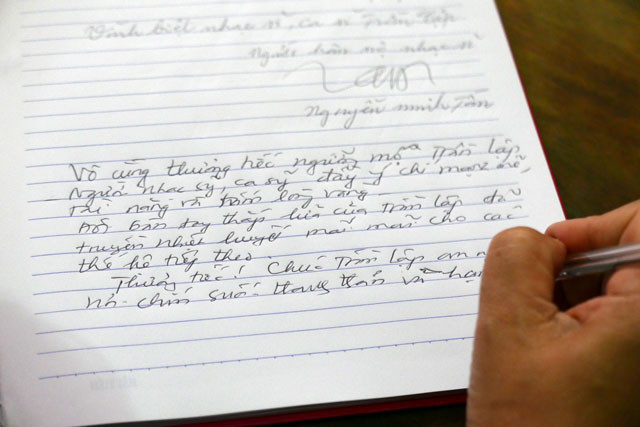 Vĩnh biệt nhạc sĩ, ca sĩ Trần Lập
Người hâm mộ nhạc sĩ
Nguyễn Minh Tâm
Vô cùng thương tiếc người Trần Lập
Người nhạc sỹ, ca sỹ đầy ý chí mạnh mẽ,
tài năng và tấm lòng vàng
đôi bàn tay thắp lửa của Trần Lập đã
truyền nhiệt huyết mãi mãi cho các
thế hệ tiếp theo.
Thương tiếc! Chúc Trần Lập an
nơi chín suối thanh thản và